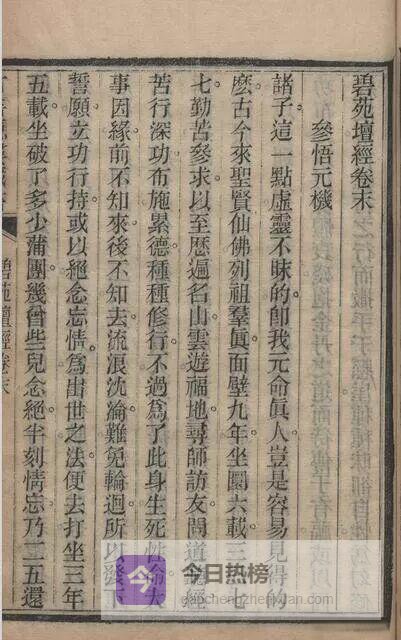 碧苑壇經卷末
參悟元機
諸子這一點虛靈不昧的卽我元命眞人豈是容易見得的
麽古今來聖賢仙佛列祖羣眞面壁九年坐圜六載三十
七勤苦參求以至歷遍名山雲遊福地尋師訪友問道經
苦行深功布施累德種種修行不過爲了此身生死性命大
事因緣前不知來後不知去流浪沈淪難免輪迴所以發下
誓願立功行持或以絕念忘情爲出世之法便去打坐三年
五載坐破了多少蒲團幾曾些兒念絕半刻情忘乃二五還
碧苑壇經卷末
今日热榜